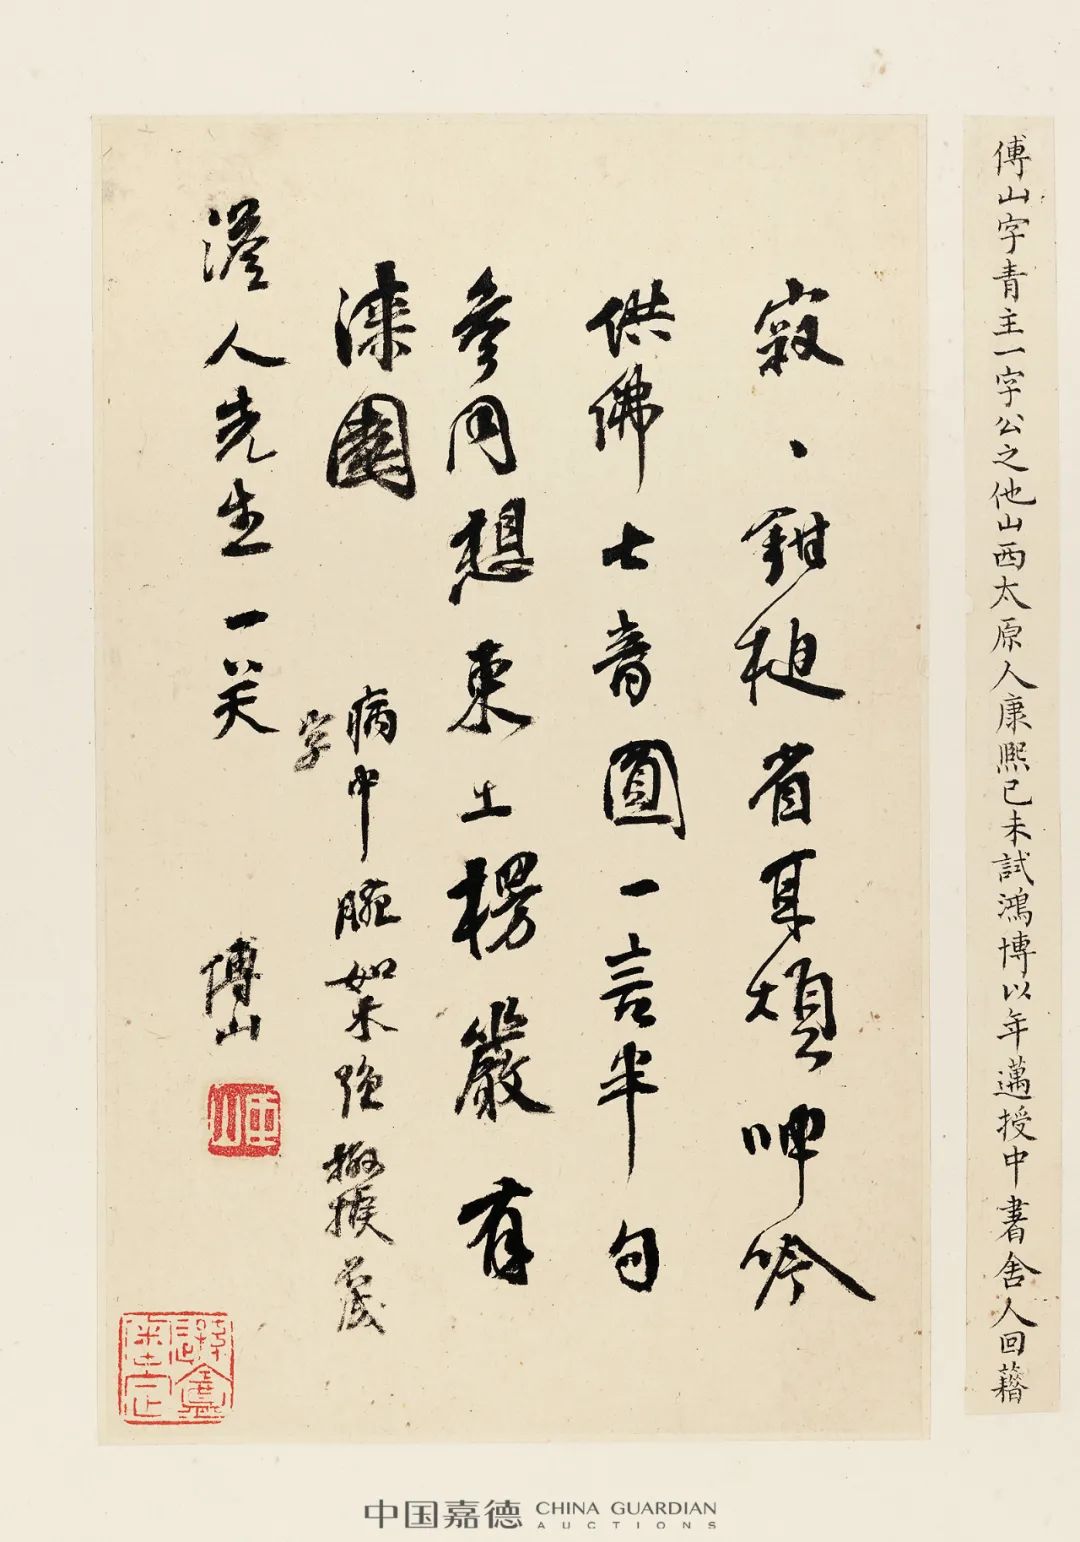 傅山字青主一字公之他山西太原人康熙己未試鴻博以年邁授中書舍人回籍
寂、鉗槌省耳煩呻吟
供佛七音圓一言半句
參同想東土楞嚴有
漆園
病中腕如木強
字
人先生一笑
傅山
中国嘉德 CHINA GUARDIAN
AUCTIONS